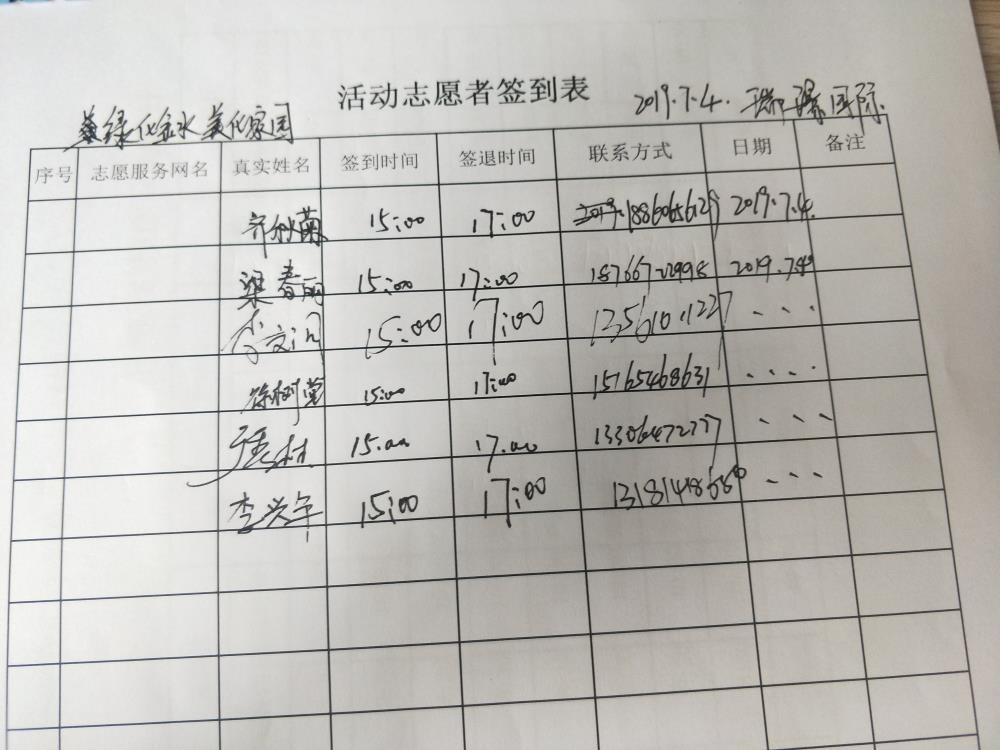 活动志愿者签到表
绿化金水 美化家园 2019.7.4. 国际
序号 志愿服务网名 真实姓名 签到时间 签退时间 联系方式 日期 备注
齐秋菊 15:00 17:00 2019.7.4.
梁春丽 15:00 17:00 18766722998 2019.7.4
文 15:00 17:00
徐树堂 15:00 17:00 15165468631 ....
林 15.00 17.00 13306472777 、、、
李兴 15:00 17:00 ...